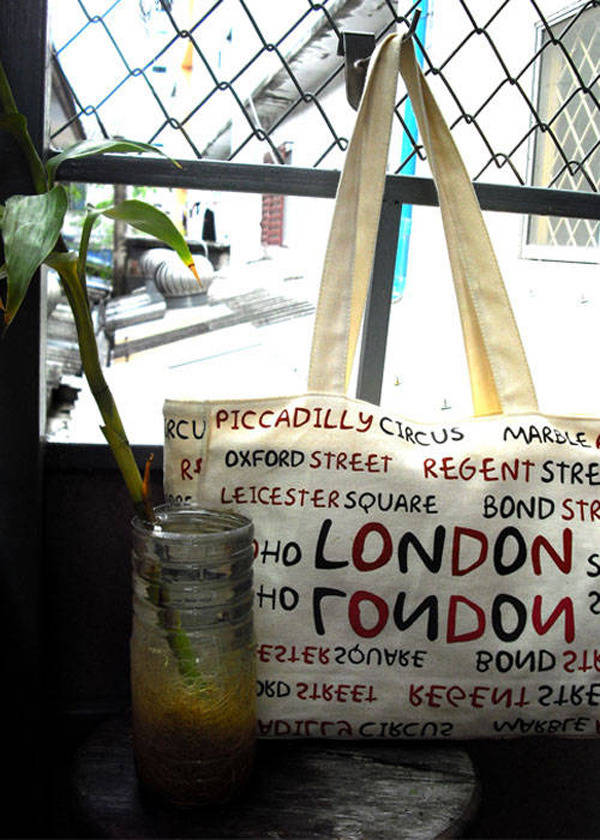 RCU PICCADILLY CIRCUS MARBLE
OXFORD STREET REGENT STRE
LEICESTER SQUARE BOND STR
OHO LONDON S
HO LONDON S
ESTER SQUARE BOND STR
ORD STREET REGENT STRE
ADILLY CIRCUS MARBLE